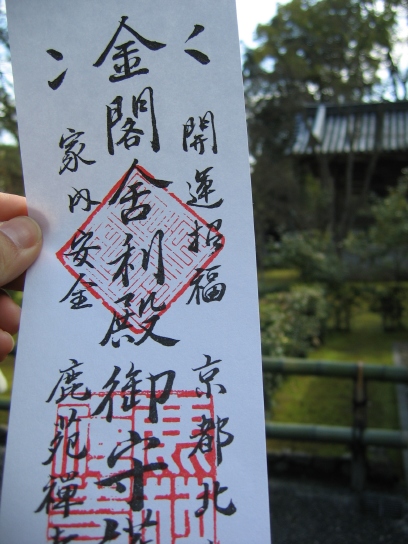 開運招福
京都北
金閣舎利殿御守
家内安全
鹿苑禪